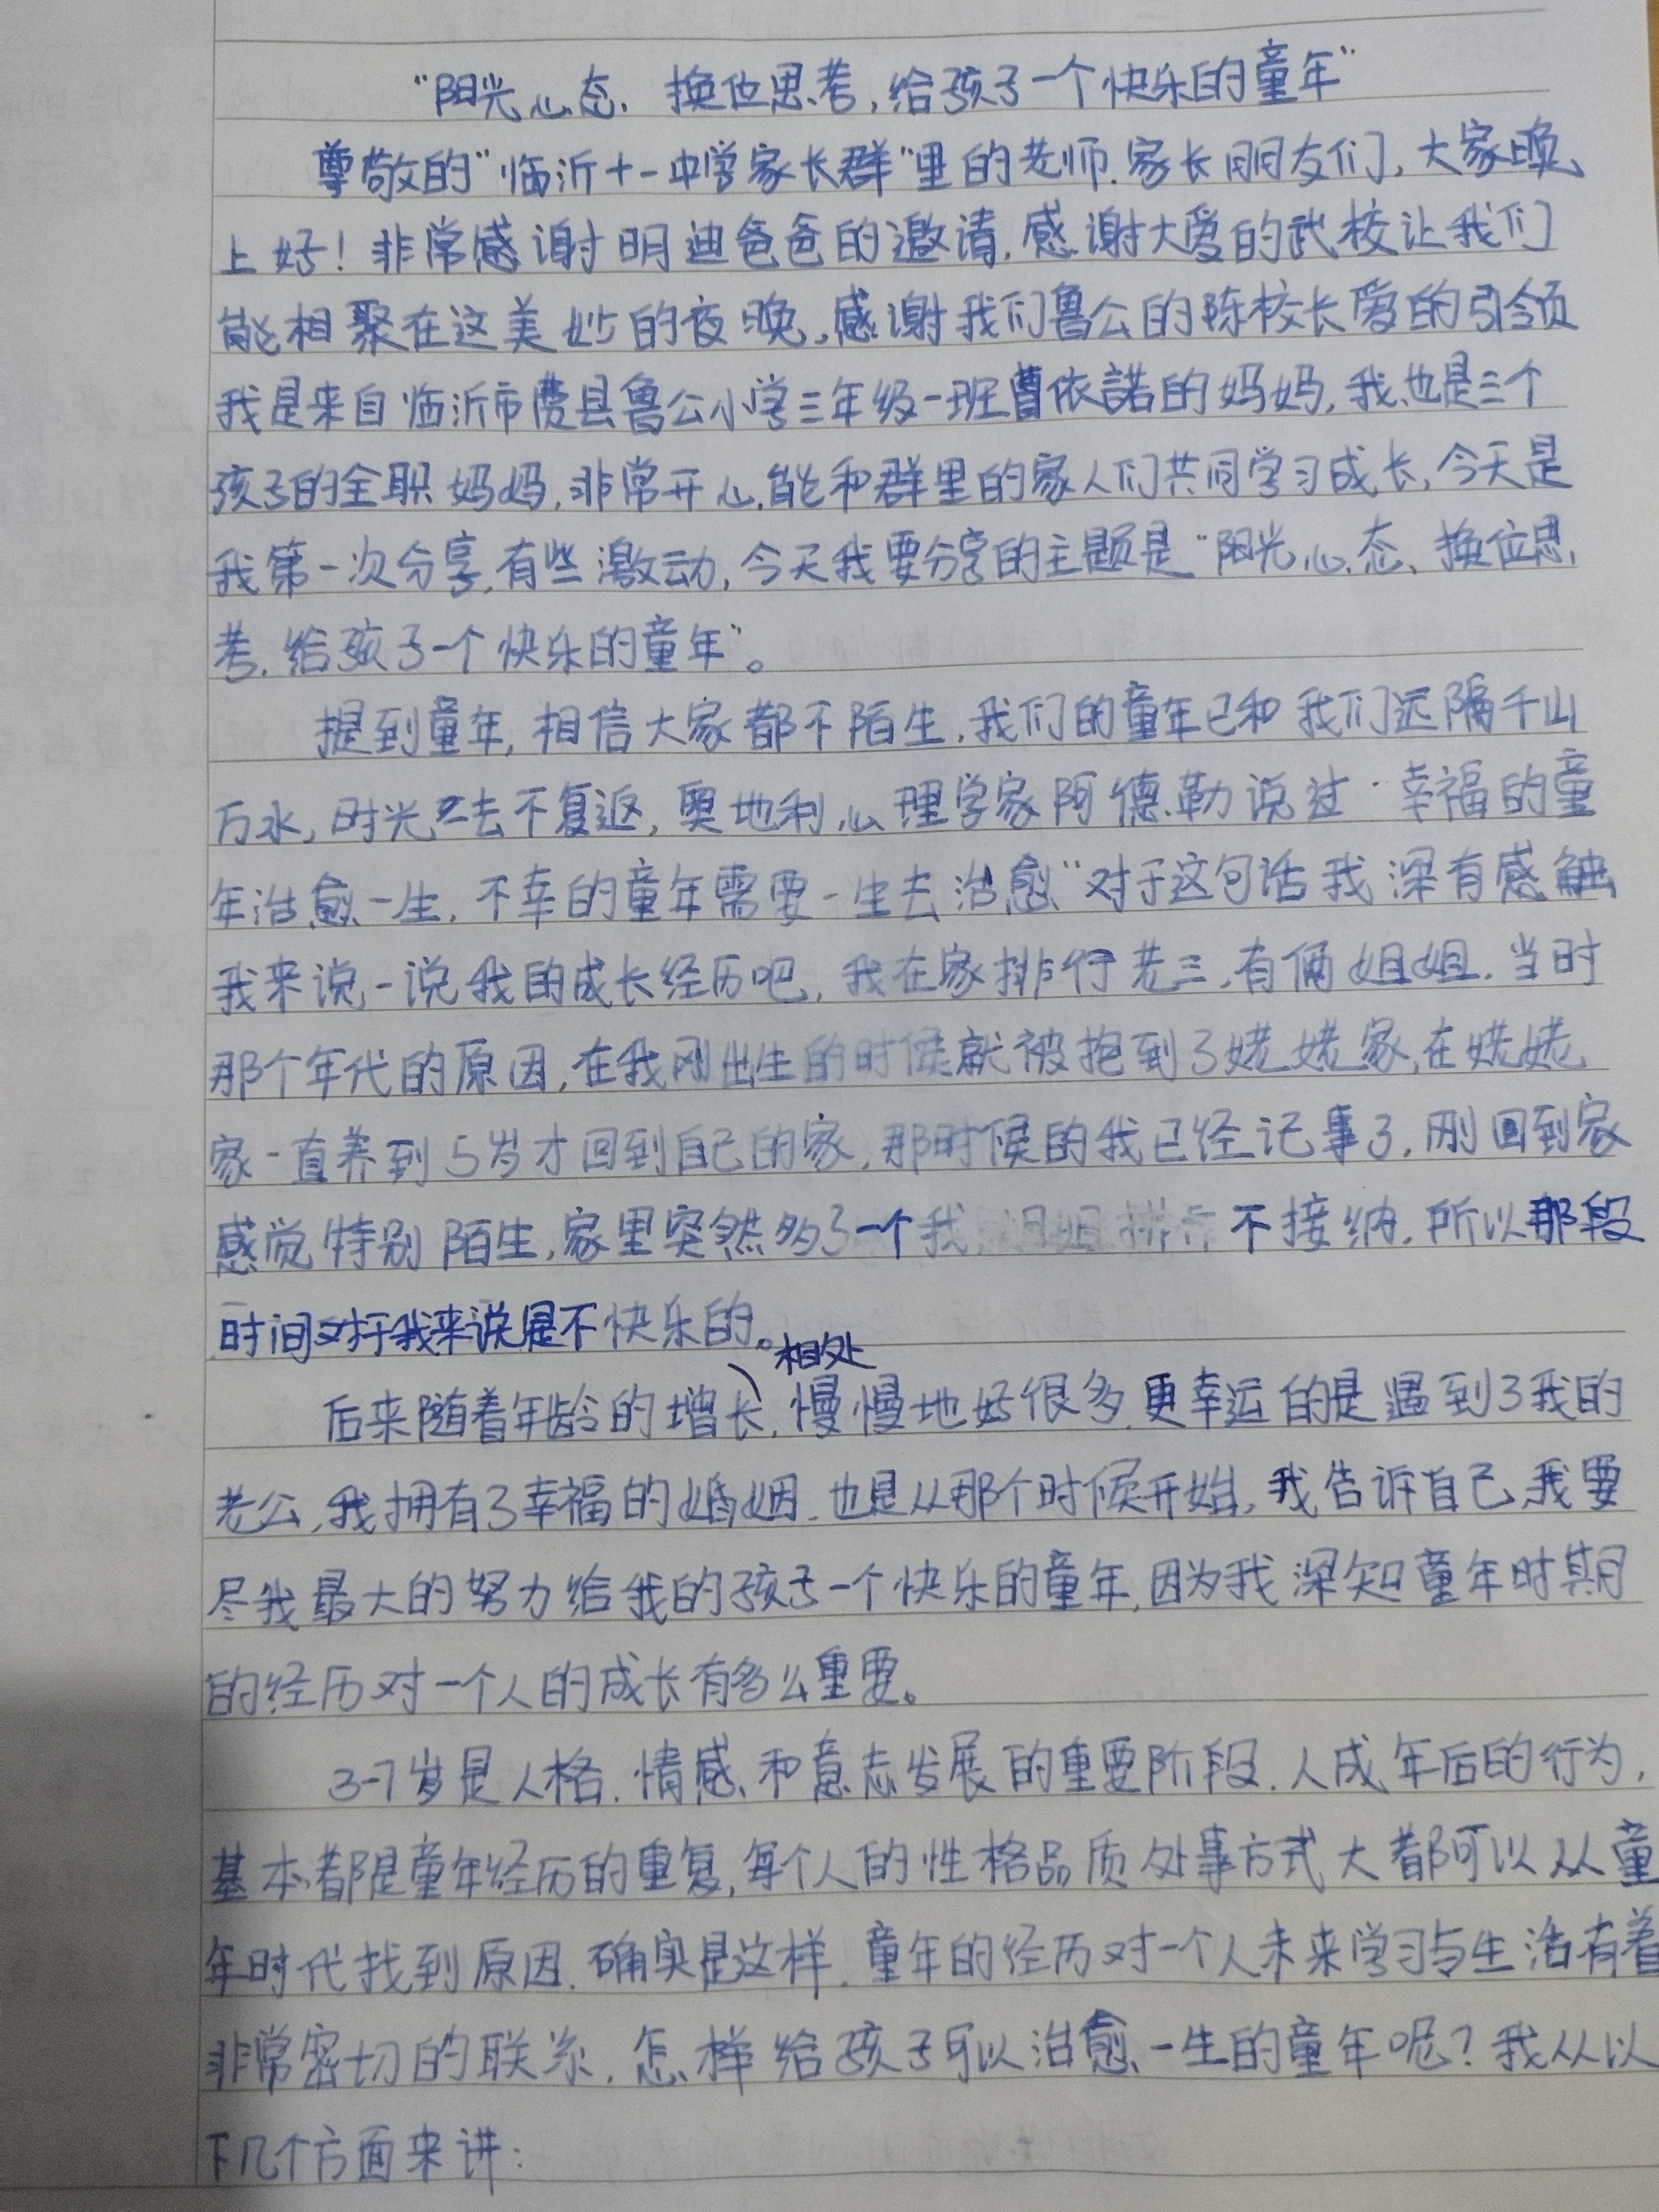 “阳光心态、换位思考,给孩子一个快乐的童年”
尊敬的“临沂十一中学家长群”里的老师.家长朋友们,大家晚
上好!非常感谢明迪爸爸的邀请,感谢大爱的武校让我们
能相聚在这美妙的夜晚,感谢我们鲁公的陈校长爱的引领
我是来自临沂市费县鲁公小学三年级一班曹依諾的妈妈,我也是三个
孩子的全职妈妈,非常开心能和群里的家人们共同学习成长,今天是
我第一次分享,有些激动,今天我要分享的主题是“阳光心态、换位思
考,给孩子一个快乐的童年”。
提到童年,相信大家都不陌生,我们的童年已和我们远隔千山
万水,时光已去不复返,奥地利心理学家阿德勒说过“幸福的童
年治愈一生,不幸的童年需要一生去治愈”对于这句话我深有感触
我来说一说我的成长经历吧,我在家排行老三,有俩姐姐.当时
那个年代的原因,在我刚出生的时候就被抱到了姥姥家,在姥姥
家一直养到5岁才回到自己的家,那时候的我已经记事了,刚回到家
感觉特别陌生,家里突然多了一个我,姐姐不接纳,所以那段
时间对于我来说是不快乐的。
后来随着年龄的增长,相处慢慢地好很多,更幸运的是遇到了我的
老公,我拥有了幸福的婚姻.也是从那个时候开始,我告诉自己,我要
尽我最大的努力给我的孩子一个快乐的童年,因为我深知童年时期
的经历对一个人的成长有多么重要。
3-7岁是人格.情感、和意志发展的重要阶段.人成年后的行为,
基本都是童年经历的重复,每个人的性格品质处事方式大都可以从童
年时代找到原因.确实是这样.童年的经历对一个人未来学习与生活有着
非常密切的联系,怎样给孩子可以治愈一生的童年呢?我从以
下几个方面来讲: